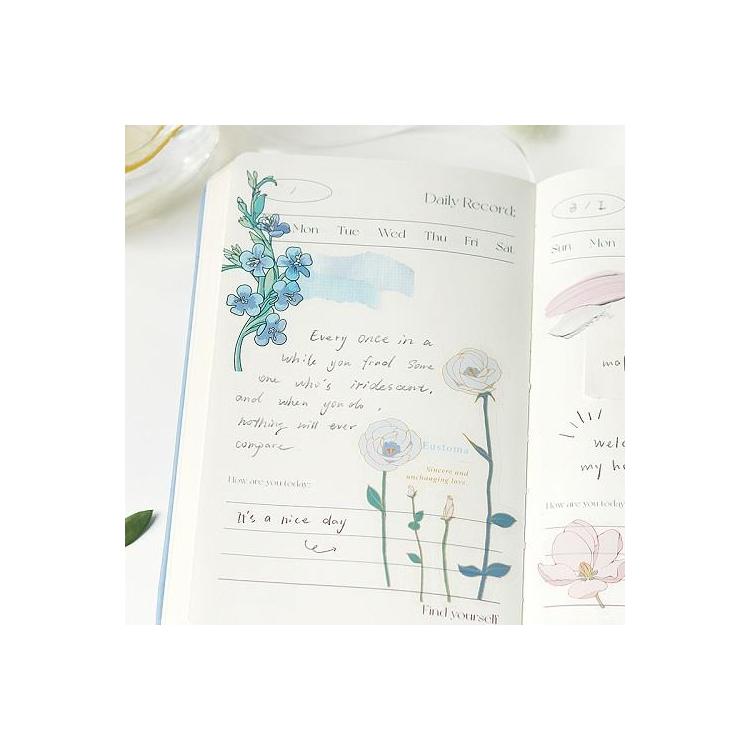 Daily Record:
Mon Tue Wed Thu Fri Sat
Every once in a
while you find some
one who's iridescent,
and when you do,
nothing will ever
compare
Eustoma
Sincere and
unchanging love.
How are you today:
It's a nice day
Find yourself
Sun Mon
my
How are you today: